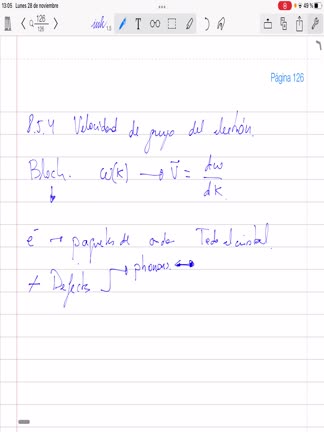 13:05 Lunes 28 de noviembre
8
49 %
126
126
1.5
Página 126
8.5.4 Velocidad de grupo del electrón.
Bloch. ω(k) → v⃗ = dω/dk
e⁻ → paquetes de onda Todo el cristal.
+ Defectos → phonons.